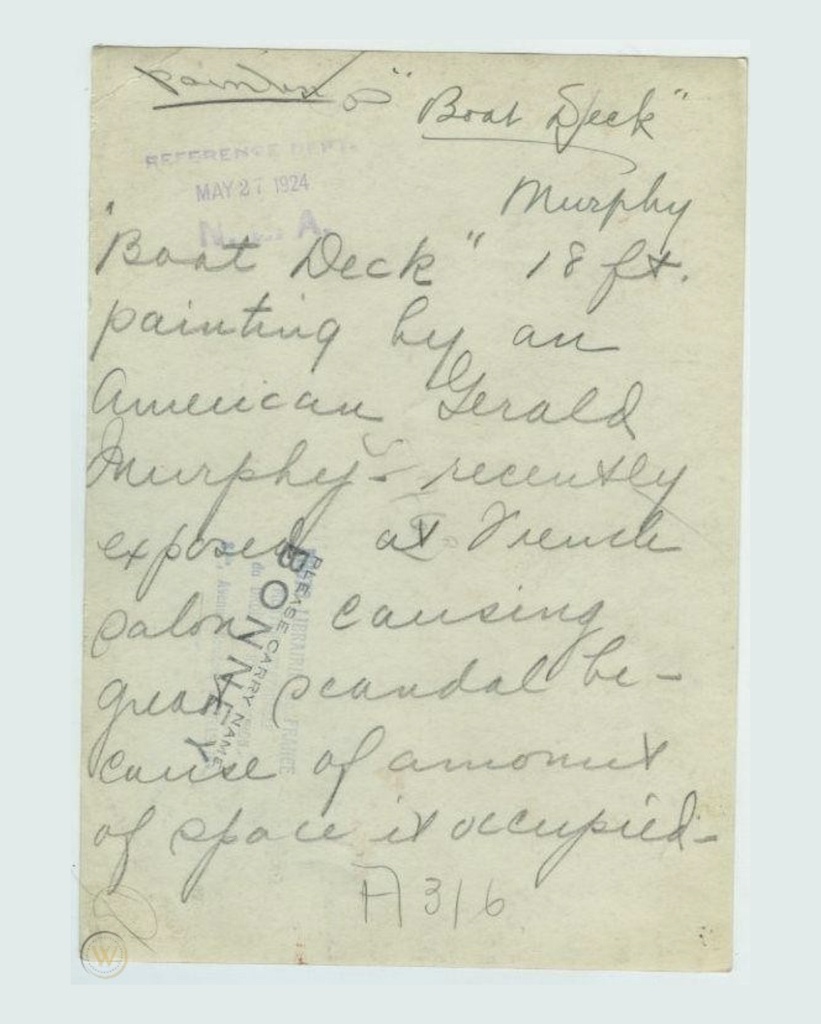 painting
"Boat Deck"
REFERENCE DEPT.
MAY 27 1924
N. E. A.
Murphy
"Boat Deck" 18 ft.
painting by an
American Gerald
Murphy - recently
exposed at French
salon causing
great scandal be-
cause of amount
of space it occupied -
PLEASE CARRY NAME
BONNEY
LIBRAIRIE FRANCE
A 316
W